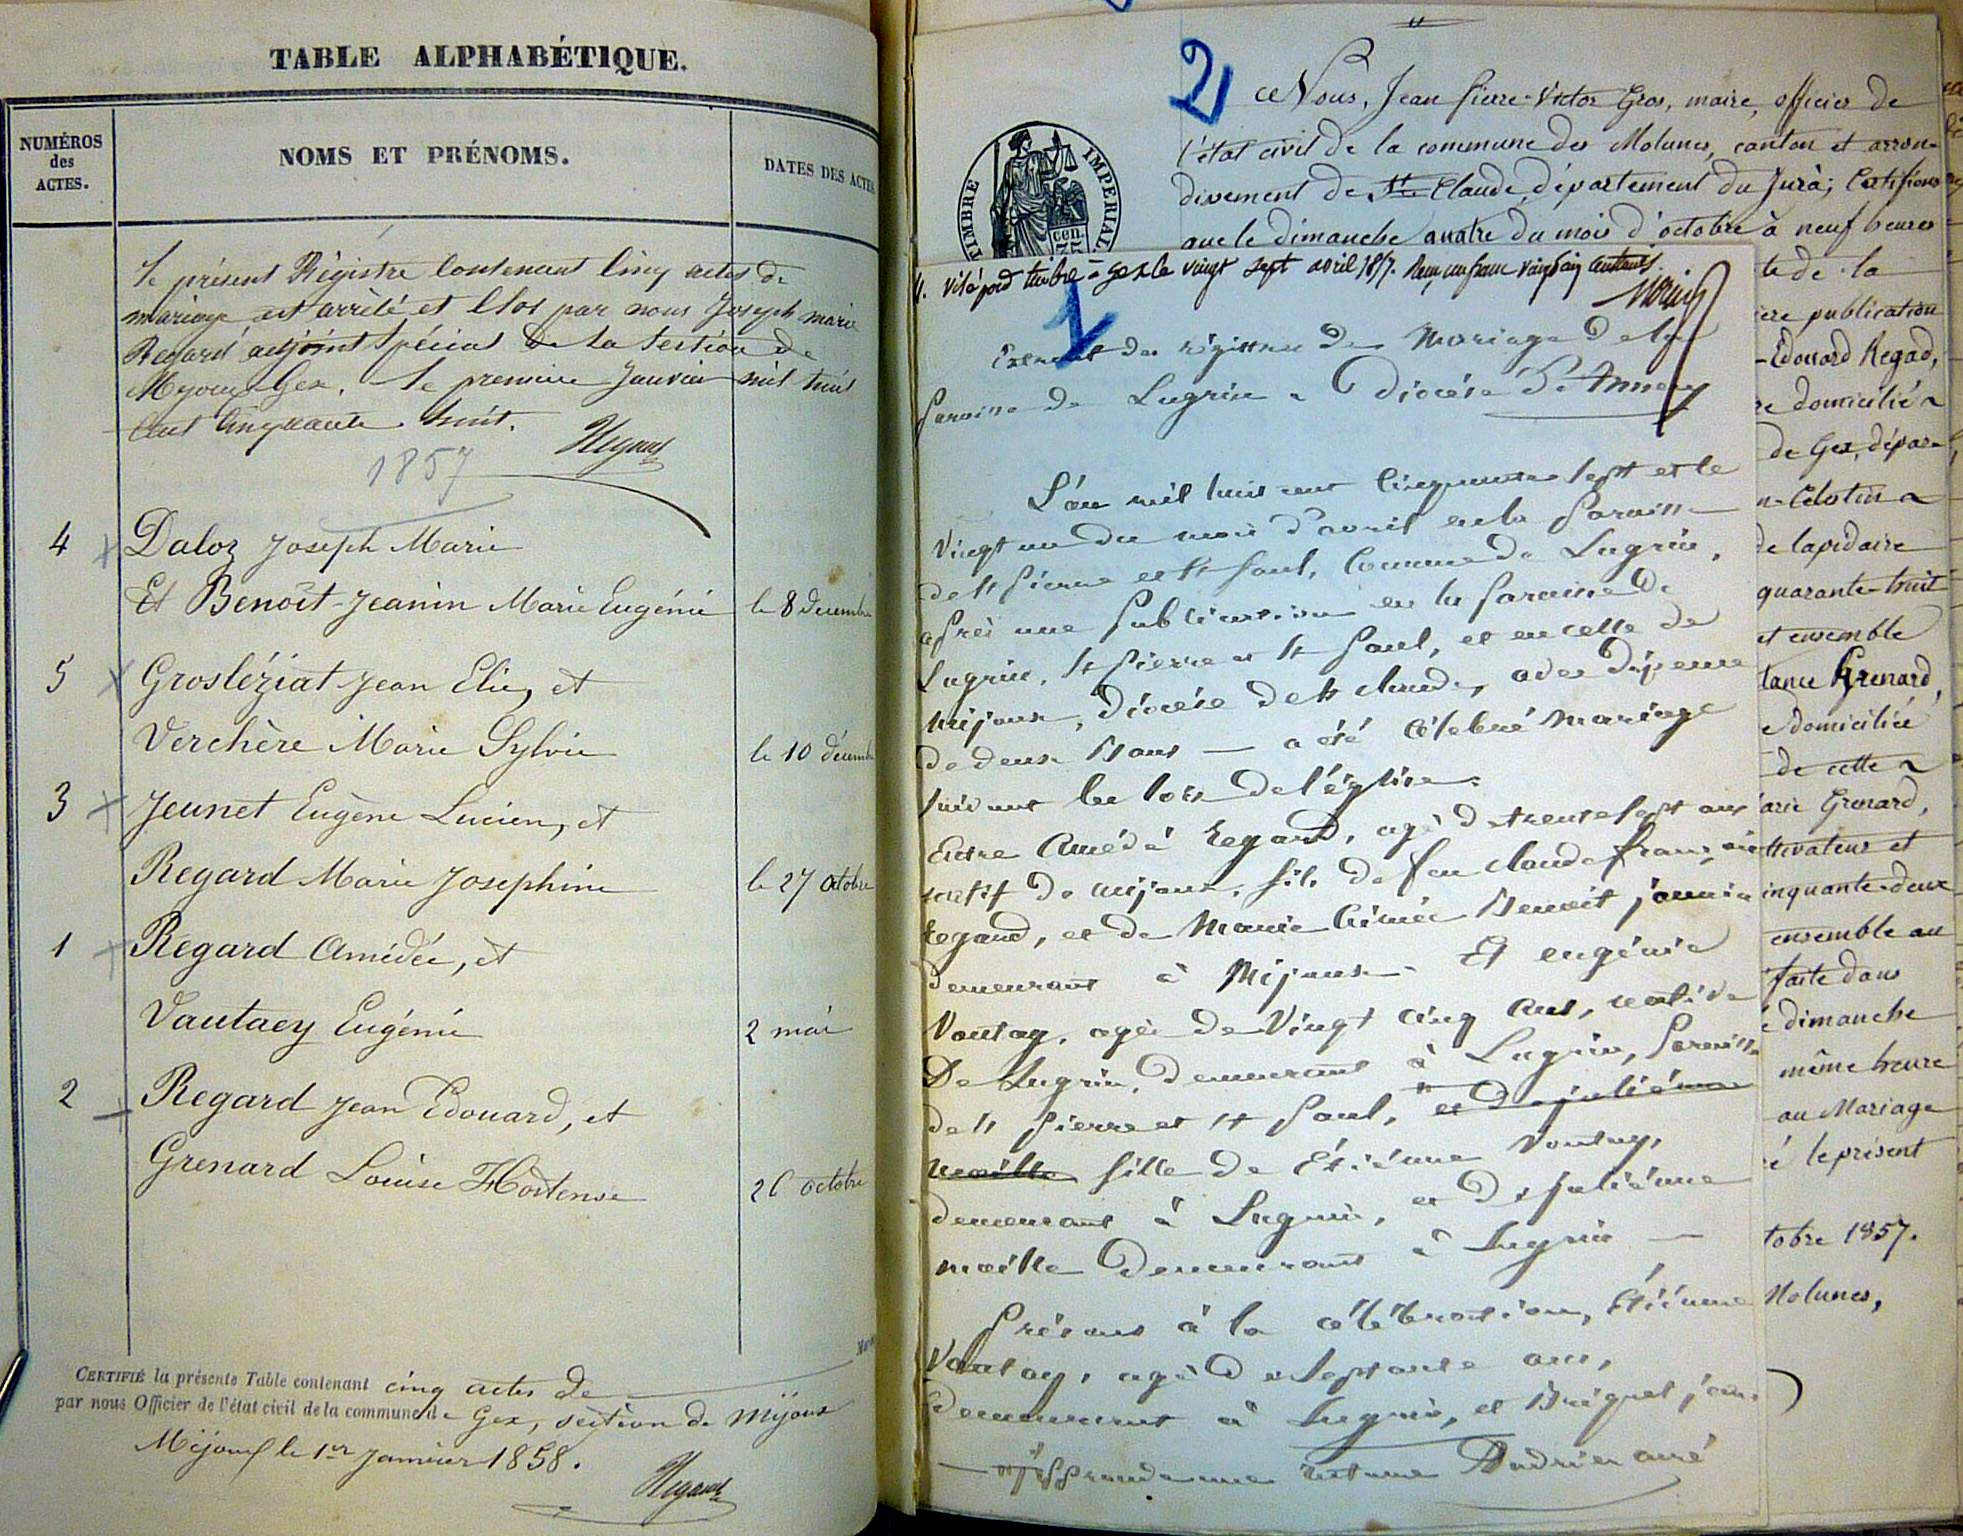 TABLE ALPHABÉTIQUE.
NUMÉROS
des
ACTES.
NOMS ET PRÉNOMS.
DATES DES ACTES
Le présent Régistre Contenant Cinq actes de
mariage est arrêté et Clos par nous Joseph marie
Regard adjoint Spécial de la Section de
Myoux-Gex, le premier Janvier mil huit
Cent Cinquante huit.
Regard
1857
4 Daloz Joseph Marie
Et Benoît-Jeanin Marie Eugénie le 8 decembre
5 Grosléziat Jean Elie, et
Verchère Marie Sylvie le 10 décembre
3 Jeunet Eugène Lucien, et
Regard Marie Josephine le 27 octobre
1 Regard Amédée, et
Vautaey Eugénie 2 mai
2 Regard Jean Edouard, et
Grenard Louise Hortense 26 octobre
CERTIFIÉ la présente Table contenant cinq actes de
par nous Officier de l'état civil de la commune de Gex, section de Mijoux
Mijoux le 1er Janvier 1858.
Regard
2
Nous, Jean Pierre-Victor Gros, maire, officier de
l'état civil de la commune des Molunes, canton et arron-
dissement de St Claude, département du Jura; Certifions
que le dimanche quatre du mois d'octobre à neuf heures
TIMBRE IMPERIAL.
cen.
te de la
ière publication
-Edouard Regad,
re domicilié à
de Gex, dépar-
n-Célestin
de lapidaire
quarante-huit
et ensemble
tance Grenard,
e domiciliée
de cette
arie Grenard,
ltivateur et
inquante-deux
ensemble au
faite dans
e dimanche
même heure
au Mariage
ré le présent
tobre 1857.
Molunes,
visé pour timbre à Gex le vingt sept avril 1857. Reçu un franc vingt cinq centimes
1
Extrait des régistres de Mariage de la
Paroisse de Lugrin Diocèse d'Annecy
L'an mil huit cent cinquante sept et le
vingt un du mois d'avril en la Paroisse
de St Pierre et St Paul, Commune de Lugrin,
après une Publication en la Paroisse de
Lugrin, St Pierre et St Paul, et en celle de
mijoux, diocèse de St claude, avec dispense
de deux Bans — a été célébré mariage
suivant les lois de l'église.
Entre Amédé Regard, agé de trente sept ans
natif de mijoux, fils de feu claude françois
Regard, et de Marie Aimée Benoit jannin
demeurant à Mijoux. Et eugénie
Vautay, agée de Vingt cinq Ans, native
De Lugrin, demeurant à Lugrin, Paroisse
de St Pierre et St Paul, et de juliénne
moille fille de Etiénne Vautay,
demeurant à Lugrin, et de juliénne
moille demeurant à Lugrin —
Présens à la célébration, Etiénne
Vautay, agé de septante ans,
demeurant à Lugrin, et Briquet jean
Andrier curé